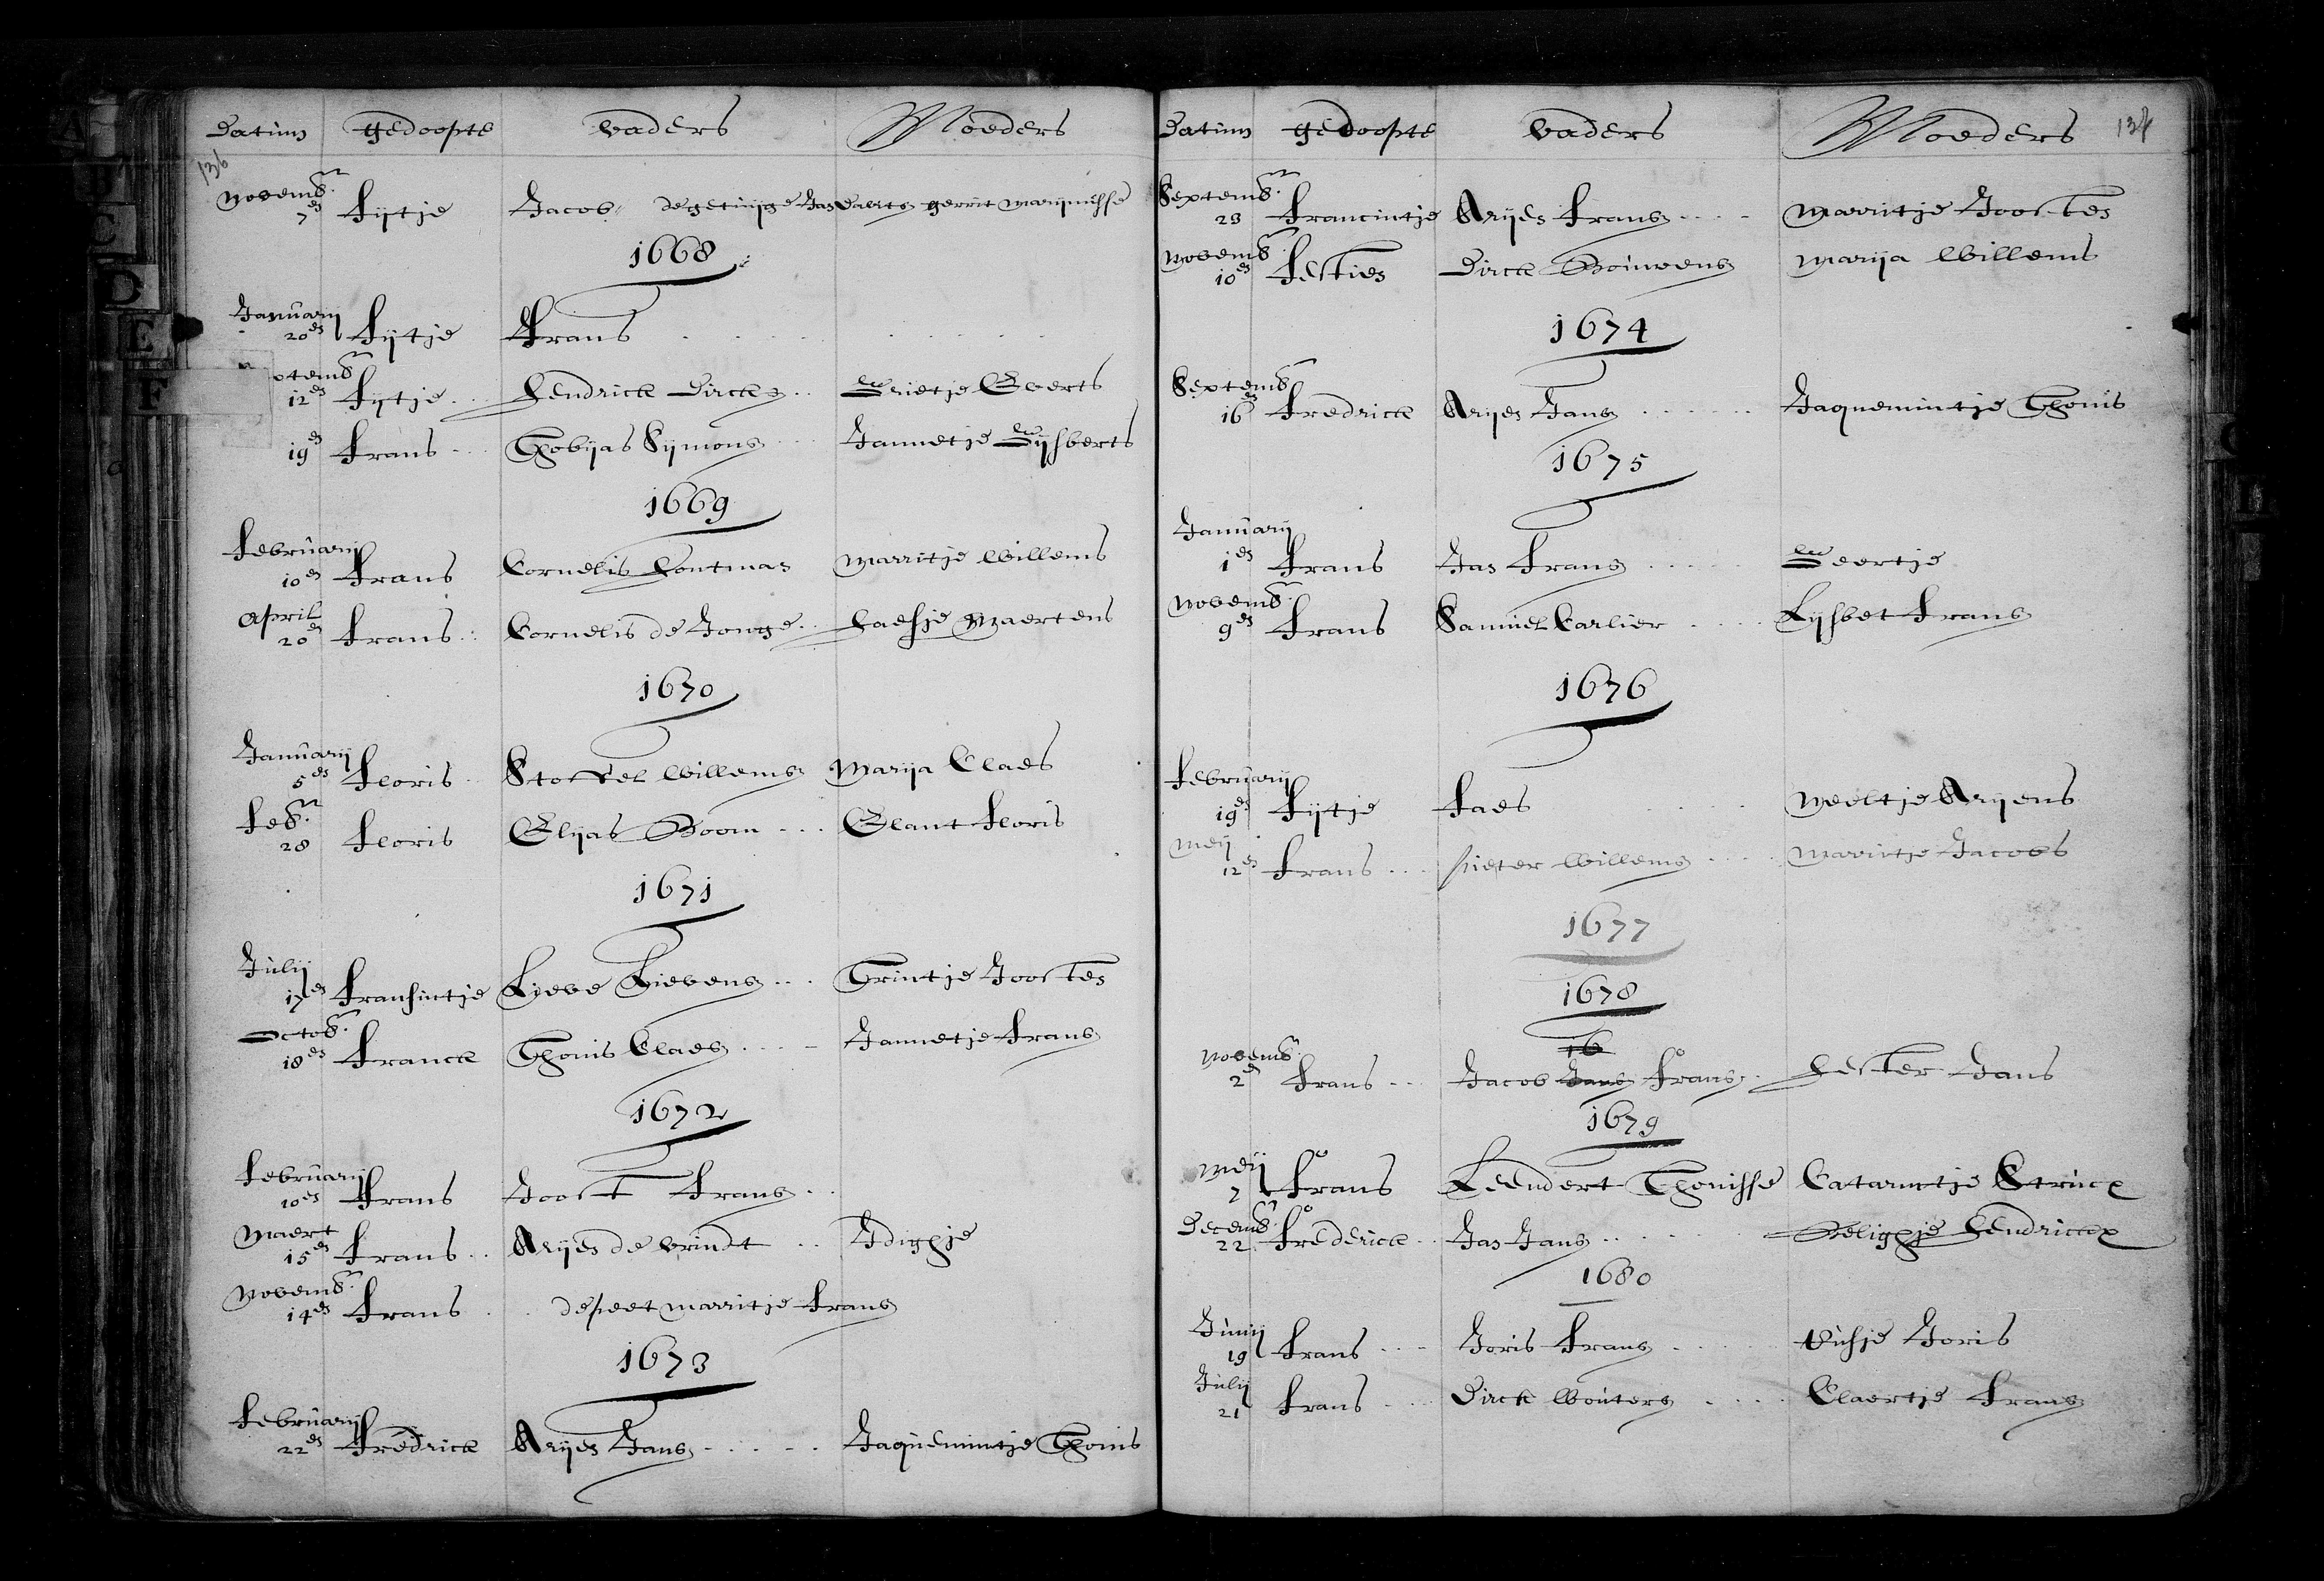 Datum gedoopte vaders Moeders
136
Novemb.
7en Fijtje Jacob degetuijge Jan Davits gerrit marijnisse
1668
Januarij
20en Fijtje Frans
12en Fijtje Hendrick Dircks Grietje Everts
19en Frans Thobijas Sijmons Jannetje Gijsberts
1669
Februarij
10en Frans Cornelis Houtman Marritje Willems
April
20en Frans Cornelis de Jonge Haesje Maertens
1670
Januarij
5en Floris Stoffel Willems Marija Claes
Feb.
28 Floris Elijas Boom Elant Floris
1671
Julij
17en Fransintje Lieve Lievens Trintje Joosten
Octob.
18en Franck Thonis Claes Jannetje Frans
1672
Februarij
10en Frans Joost Frans
Maert
15en Frans Arijen de Vrindt Idigje
Novemb.
14en Frans de peet marritje Frans
1673
Februarij
22en Fredrick Arijen Jans Jaquemintje Thonis
Datum gedoopte vaders Moeders
Septemb.
23 Francintje Arijen Frans Marritje Joosten
Novemb.
10en Festien Dirck Bouwens Marija Willems
1674
Septemb.
16en Fredrick Arijen Jans Jaquemintje Thonis
1675
Januarij
1en Frans Jan Frans Geertje
Novemb.
9en Frans Samuel Carlier Lijsbet Frans
1676
Februarij
19en Fijtje Faes Neeltje Arijens
Meij
12en Frans Pieter Willems Marritje Jacobs
1677
1678
16
Novemb.
2en Frans Jacob Jans Frans Hester Jans
1679
Meij
7 Frans Leendert Thonisse Catarintje Strücx
Decemb.
22 Frederick Jan Jans Beligje Hendricx
1680
Junij
19 Frans Joris Frans Joris
Julij
21 Frans Dirck Wouters Claertje Frans